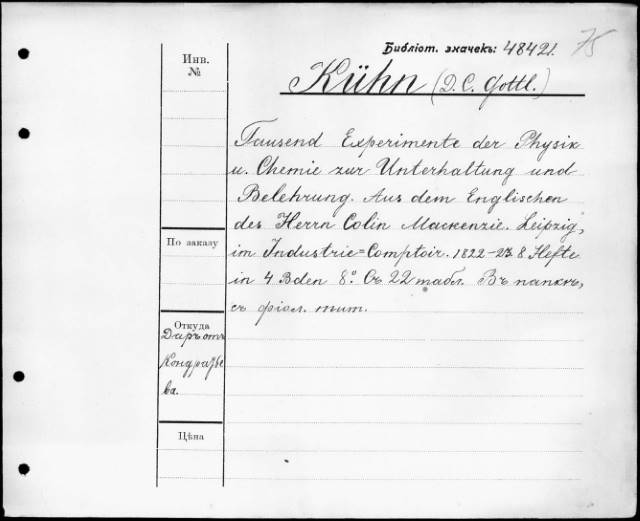 Библіот. значекъ: 48421. 75
Инв.
№
Kühn (D. C. Gottl.)
Tausend Experimente der Physik
u. Chemie zur Unterhaltung und
Belehrung. Aus dem Englischen
des Herrn Colin Mackenzie. Leipzig,
По заказу
im Industrie=Comptoir. 1822-23. 8 Hefte
in 4 Bden 8°. Съ 22 табл. Въ папкѣ,
съ фіол. тит.
Откуда
Даръ отъ
Кондратье
ва.
Цѣна